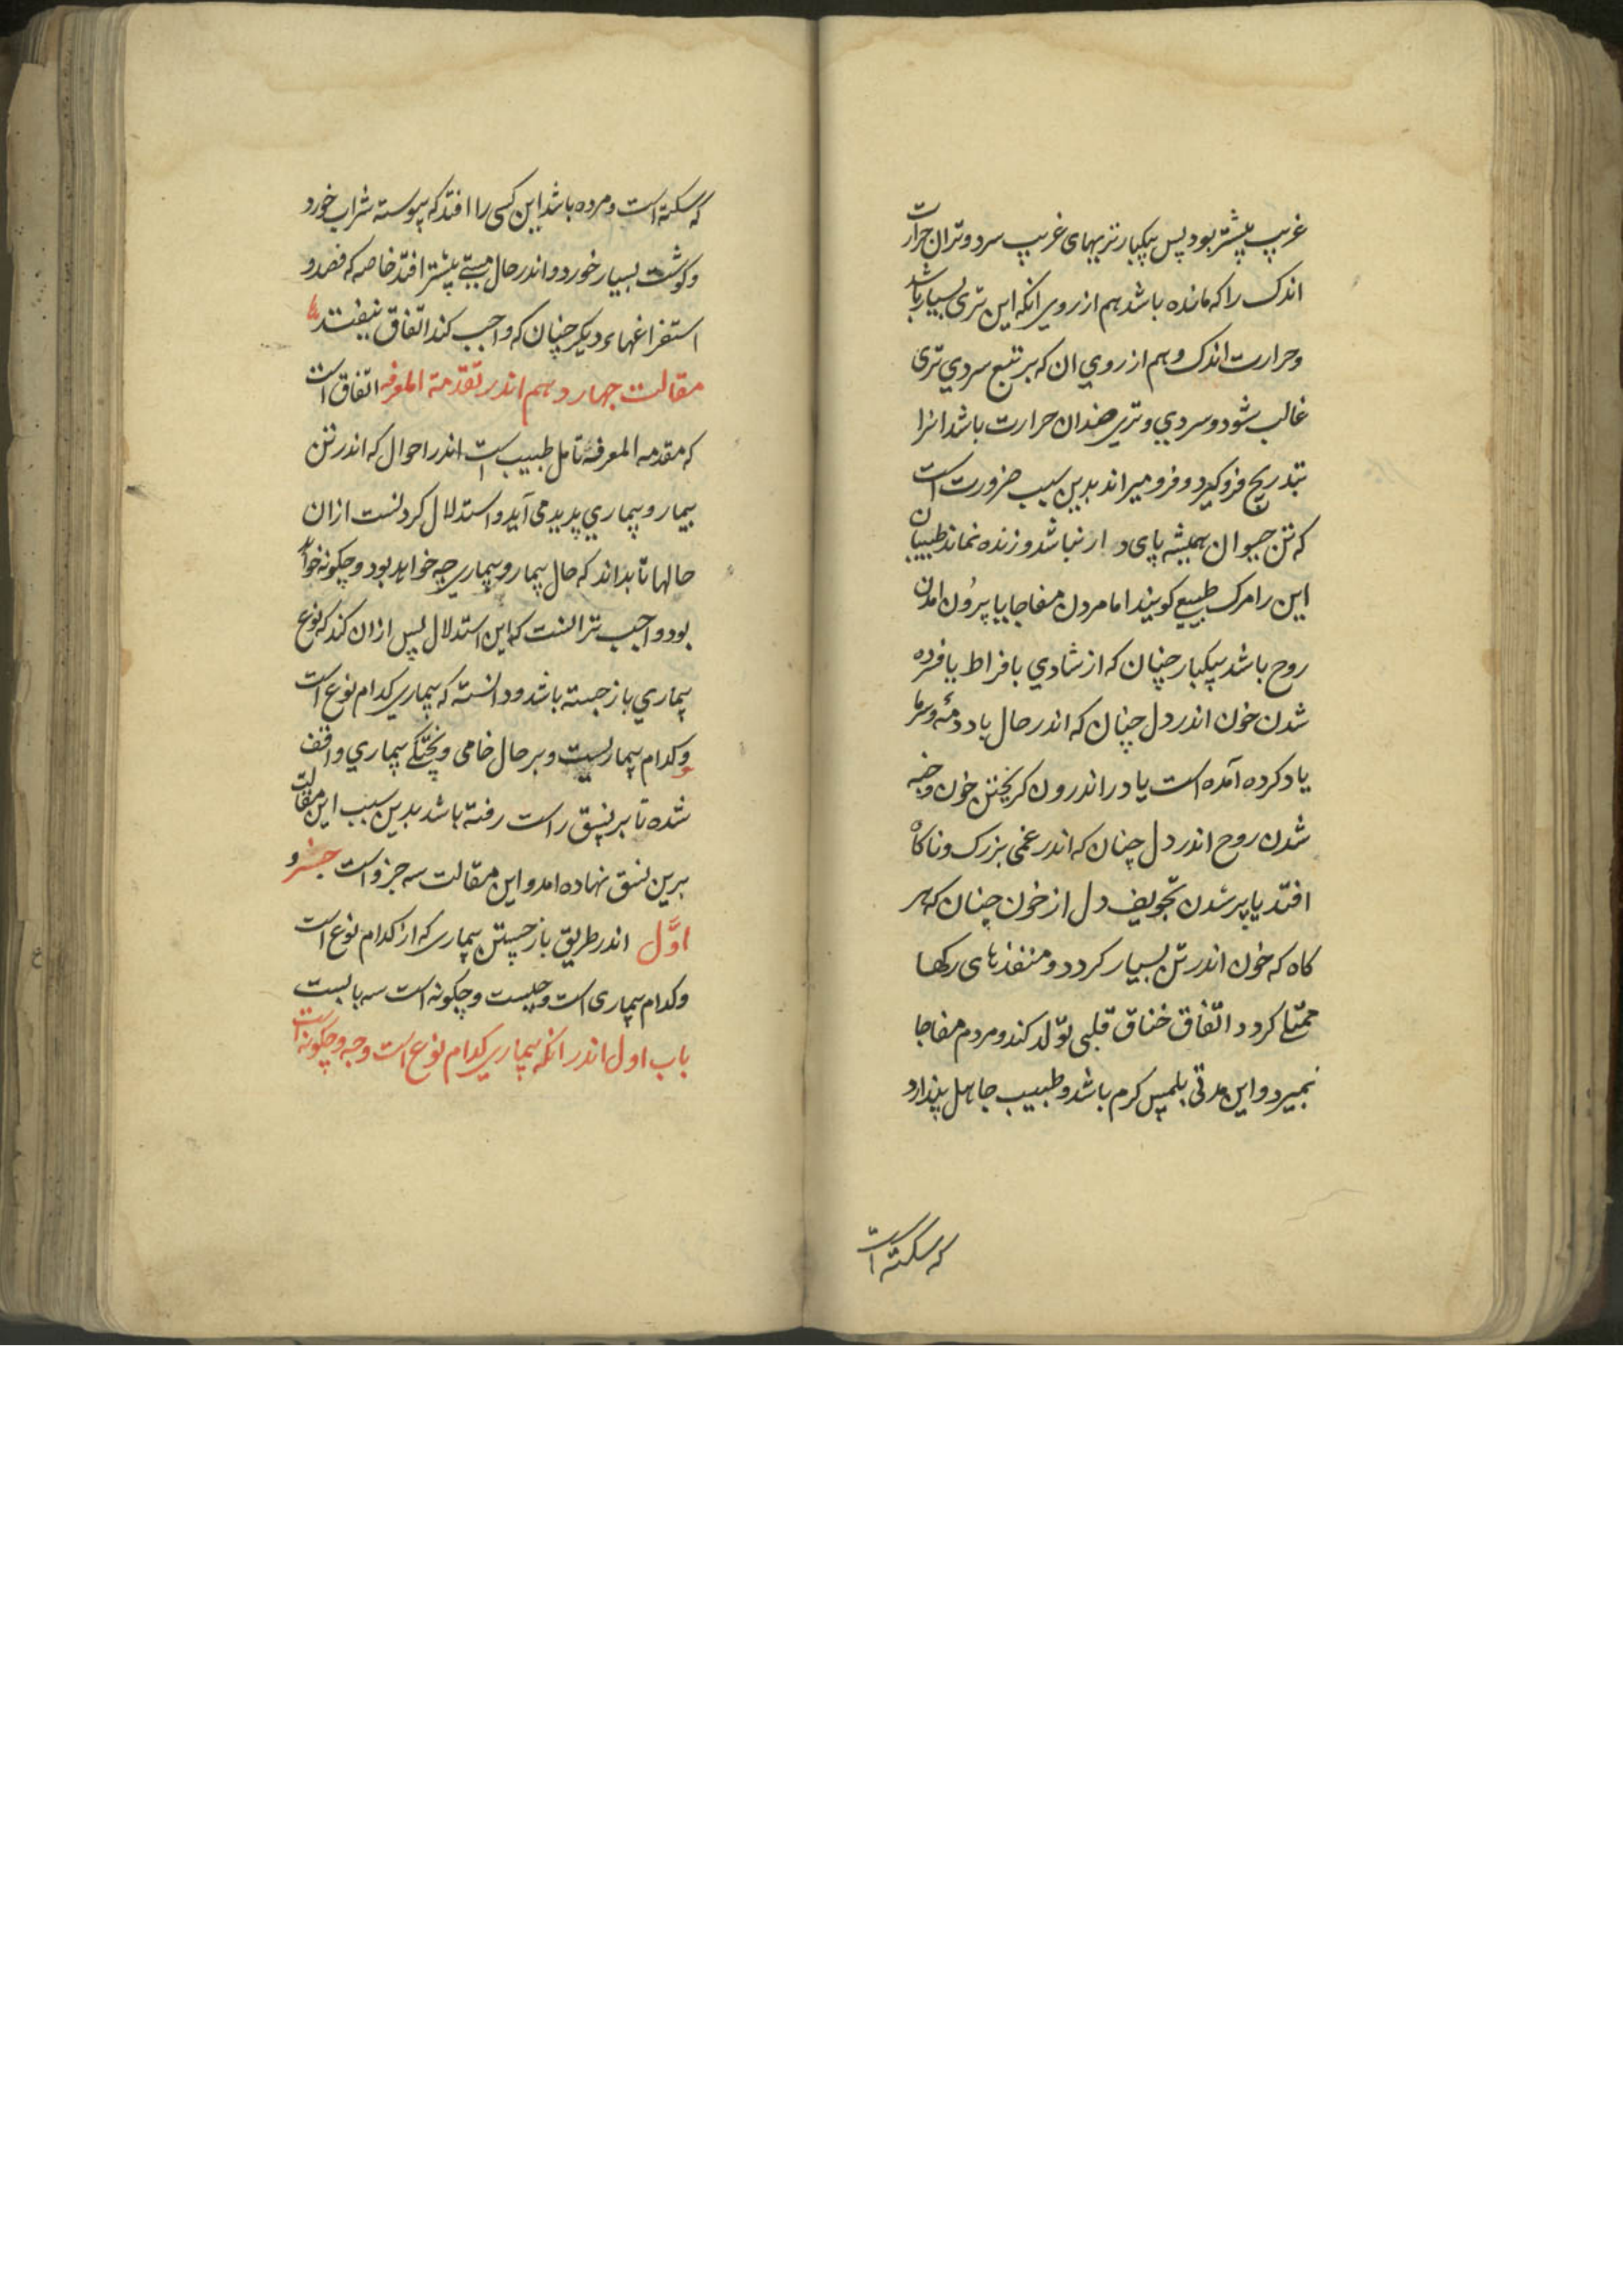 غریب بیشتر بود پس بیکبار تریهای غریب سرد و تر ان حرارت
اندک را که مانده باشد هم از روی انکه این تری بسیار باشد
و حرارت اندک و هم از روی ان که بر تبع سردی تری
غالب شود و سردی و تری ضد ان حرارت باشد انرا
بتدریج فرو کیرد و فرو میراند بدین سبب ضرورت است
که تن حیوان همیشه پای دار نباشد و زنده نماند طبیبان
این را مرک طبیعی کویند اما مردن مفاجا یا بیرون امدن
روح باشد بیکبار چنان که از شادی بافراط یا فسرده
شدن خون اندر دل چنان که اندر حال باد دمه و سرما
یاد کرده آمده است یا در اندرون کریختن خون و خبه
شدن روح اندر دل چنان که اندر غمی بزرک و ناکاه
افتد یا پر شدن تجویف دل از خون چنان که هر
کاه که خون اندر تن بسیار کردد و منفذهای رکها
ممتلی کردد اتفاق خناق قلبی تولد کند و مردم مفاجا
بمیرد و این مدتی بلمس کرم باشد و طبیب جاهل پندارد
که سکته است
که سکته است و مرده باشد این کسی را افتد که پیوسته شراب خورد
و کوشت بسیار خورد و اندر حال مستی بیشتر افتد خاصه که فصد و
استفراغهاء دیکر چنان که واجب کند اتفاق نیفتد
مقالت چهاردهم اندر تقدمة المعرفه اتفاق است
که مقدمه المعرفة تامل طبیب است اندر احوال که اندر تن
بیمار و بیماری پدید می آید و استدلال کردنست از ان
حالها تا بداند که حال بیمار و بیماری چه خواهد بود و چکونه خواهد
بود و اجب تر انست که این استدلال پس از ان کند که نوع
بیماری باز جسته باشد و دانسته که بیماری کدام نوع است
و کدام بیماریست و بر حال خامی و پختکی بیماری واقف
شده تا بر نسق راست رفته باشد بدین سبب این مقالت
برین نسق نهاده امد و این مقالت سه جزو است جزو
اوّل اندر طریق باز جستن بیماری که از کدام نوع است
و کدام بیماری است و چیست و چکونه است سه بابست
باب اول اندر انکه بیماری کدام نوع است و چه و چکونه است